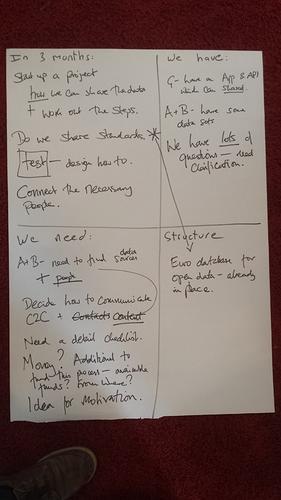 In 3 months:
Start up a project
how we can share the data
+ work out the steps.
Do we share standards *
Test - design how to.
Connect the necessary
people.
We have:
G- have a App & API
which can shared.
A+B- have some
data sets
We have lots of
questions - need
clarification.
We need:
A+B- need to find data sources
+ people
Decide how to communicate
C2C + Contacts Content
Need a detail checklist.
Money? Additional to
fund this process - available
funds? From where?
Idea for Motivation.
Structure
Euro database for
open data - already
in place.